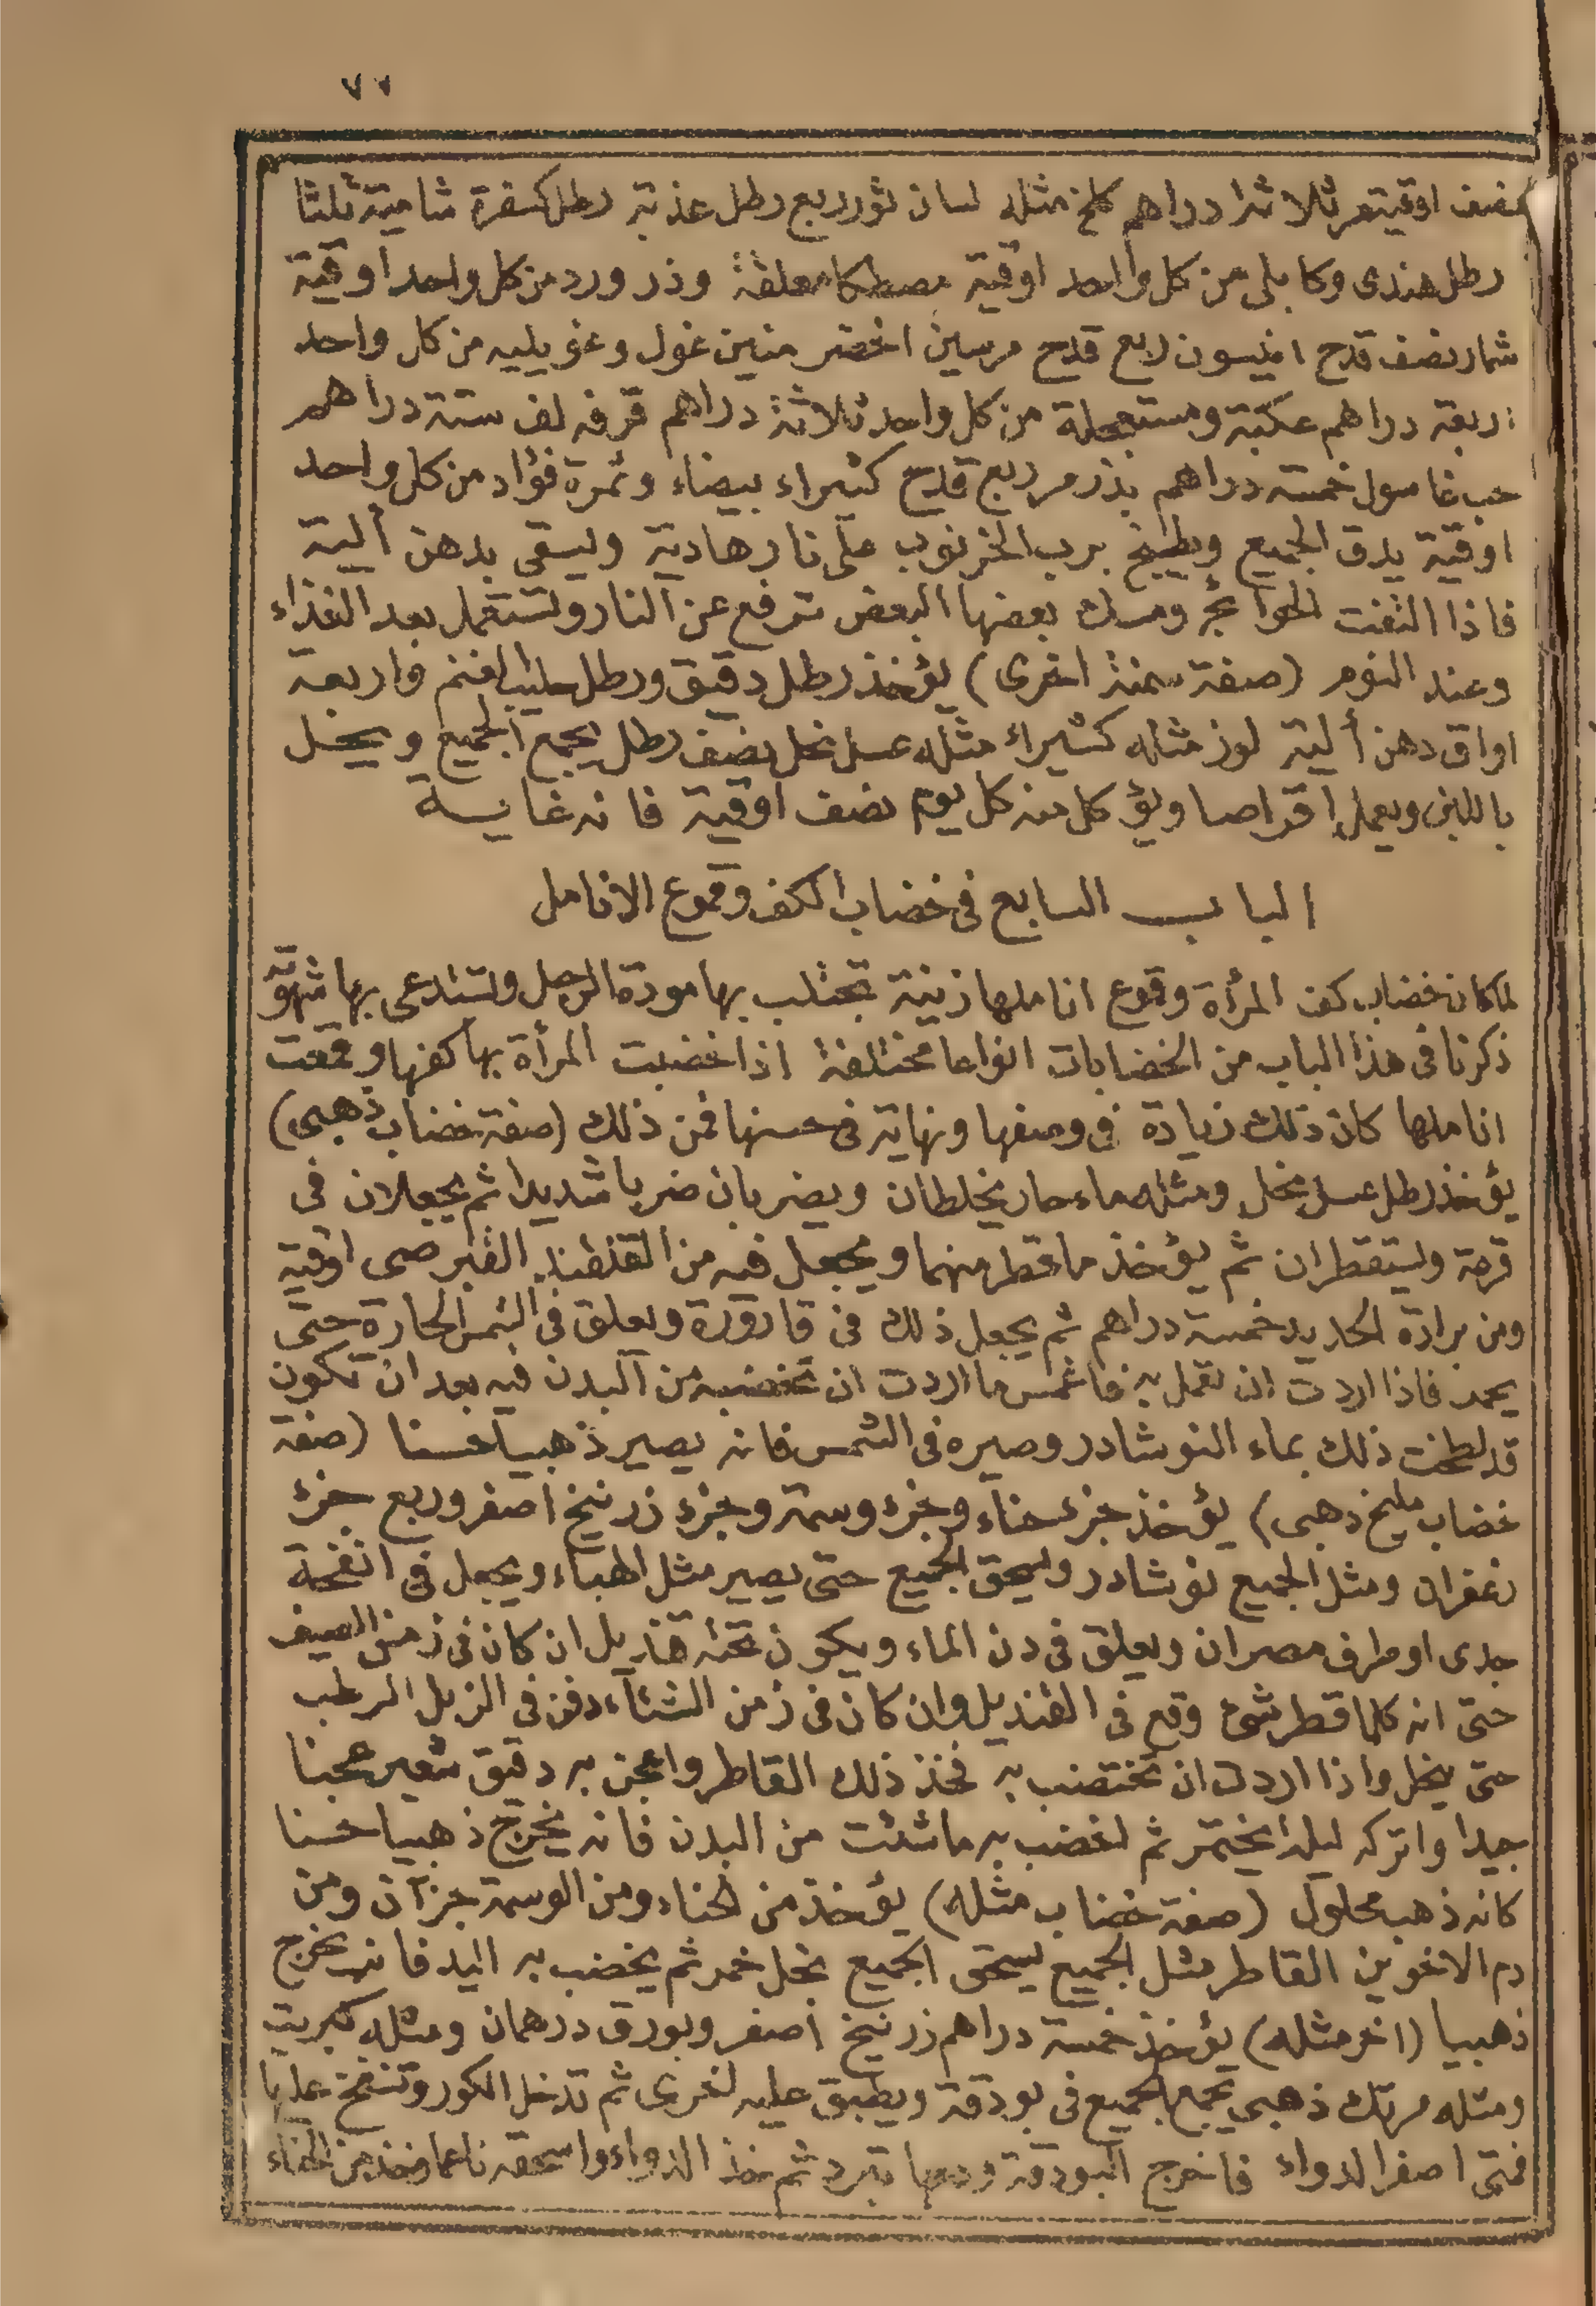 ٧١
نصف اوقية مر ثلاثة دراهم كلخ مثله لسان ثور ربع رطل عذبة رطل كسفرة شامية ثلثا
رطل هندى وكابلى من كل واحد اوقية مصطكا معلقة وذر ورد من كل واحد اوقية
شمار نصف قدح انيسون ربع قدح مرسين اخضر منين غول وغويليه من كل واحد
اربعة دراهم عكبة ومستعجلة من كل واحد ثلاثة دراهم قرفه لف ستة دراهم
حب غاسول خمسة دراهم بذر مر ربع قدح كثيراء بيضاء وثمرة فؤاد من كل واحد
اوقية يدق الجميع ويطبخ برب الخرنوب على نار هادية ويسقى بدهن ألية
فاذا التفت الحوائج ومسك بعضها البعض ترفع عن النار وتستعمل بعد الغذاء
وعند النوم (صفة سمنة اخرى) يؤخذ رطل دقيق ورطل حليب الغنم واربعة
اواق دهن ألية لوز مثله كثيراء مثله عسل نحل نصف رطل يجمع الجميع وينخل
باللبن ويعمل اقراصا ويؤكل منه كل يوم نصف اوقية فانه غاية
الباب السابع فى خضاب الكف وقموع الانامل
لما كان خضاب كف المرأة وقموع اناملها زينة تجتلب بها مودة الرجل وتستدعى بها شهوته
ذكرنا فى هذا الباب من الخضابات انواعا مختلفة اذا خضبت المرأة بها كفها وقمعت
اناملها كان ذلك زيادة فى وصفها ونهاية فى حسنها فمن ذلك (صفة خضاب ذهبى)
يؤخذ رطل عسل نحل ومثله ماء حار يخلطان ويضربان ضربا شديدا ثم يجعلان فى
قرعة ويستقطران ثم يؤخذ ما قطر منهما ويجعل فيه من القلقند القبرصى اوقية
ومن برادة الحديد خمسة دراهم ثم يجعل ذلك فى قارورة ويعلق فى الشمس الحارة حتى
يجمد فاذا اردت ان تعمل به فاغمس ما اردت ان تخضبه من البدن فيه بعد ان تكون
قد لطخت ذلك بماء النوشادر وصيره فى الشمس فانه يصير ذهبيا حسنا (صفة
خضاب مليح دهبى) يؤخذ جزء حناء وجزء وسمة وجزء زرنيخ اصفر وربع جزء
زعفران ومثل الجميع نوشادر ويسحق الجميع حتى يصير مثل الهباء ويجعل فى انفحة
جدى او طرف مصران ويعلق فى دن الماء ويكون تحته قنديل ان كان فى زمن الصيف
حتى انه كلما قطر شئ وقع فى القنديل وان كان فى زمن الشتاء دفن فى الزبل الرطب
حتى ينحل واذا اردت ان تختضب به فخذ ذلك القاطر واعجن به دقيق شعير عجينا
جيدا واتركه ليلة يختمر ثم اخضب به ما شئت من البدن فانه يخرج ذهبيا حسنا
كانه ذهب محلول (صفة خضاب مثله) يؤخذ من الحناء ومن الوسمة جزآن ومن
دم الاخوين القاطر مثل الجميع يسحق الجميع بخل خمر ثم يخضب به اليد فانه يخرج
ذهبيا (اخر مثله) يؤخذ خمسة دراهم زرنيخ اصفر وبورق درهمان ومثله كبريت
ومثله مرتك ذهبى يجمع الجميع فى بودقة ويطبق عليه اخرى ثم تدخل الكور وتنفخ عليها
فمتى اصفر الدواء فاخرج البودقة ودعها تبرد ثم خذ الدواء واسحقه ناعما وخذ من الحناء